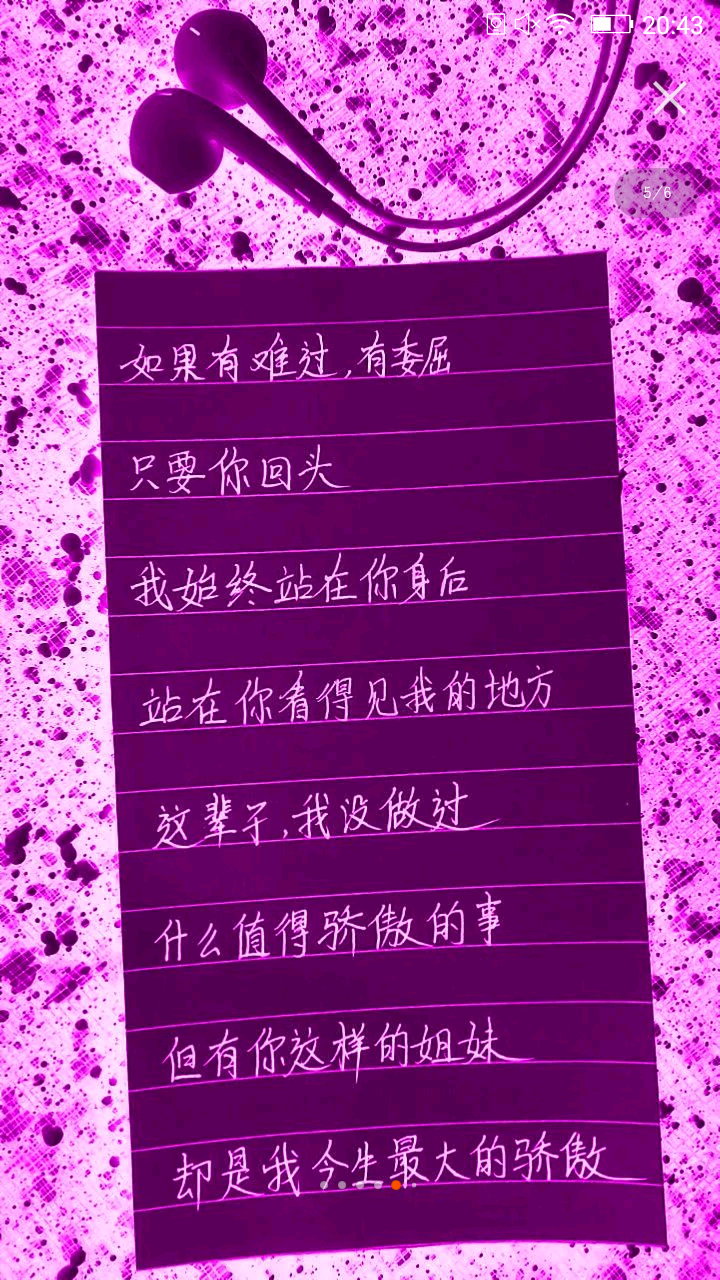 20:43
5/6
如果有难过,有委屈
只要你回头
我始终站在你身后
站在你看得见我的地方
这辈子,我没做过
什么值得骄傲的事
但有你这样的姐妹
却是我今生最大的骄傲